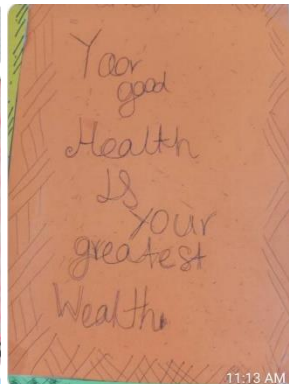 Yoor
good
Health
is
your
greatest
Wealth
11:13 AM